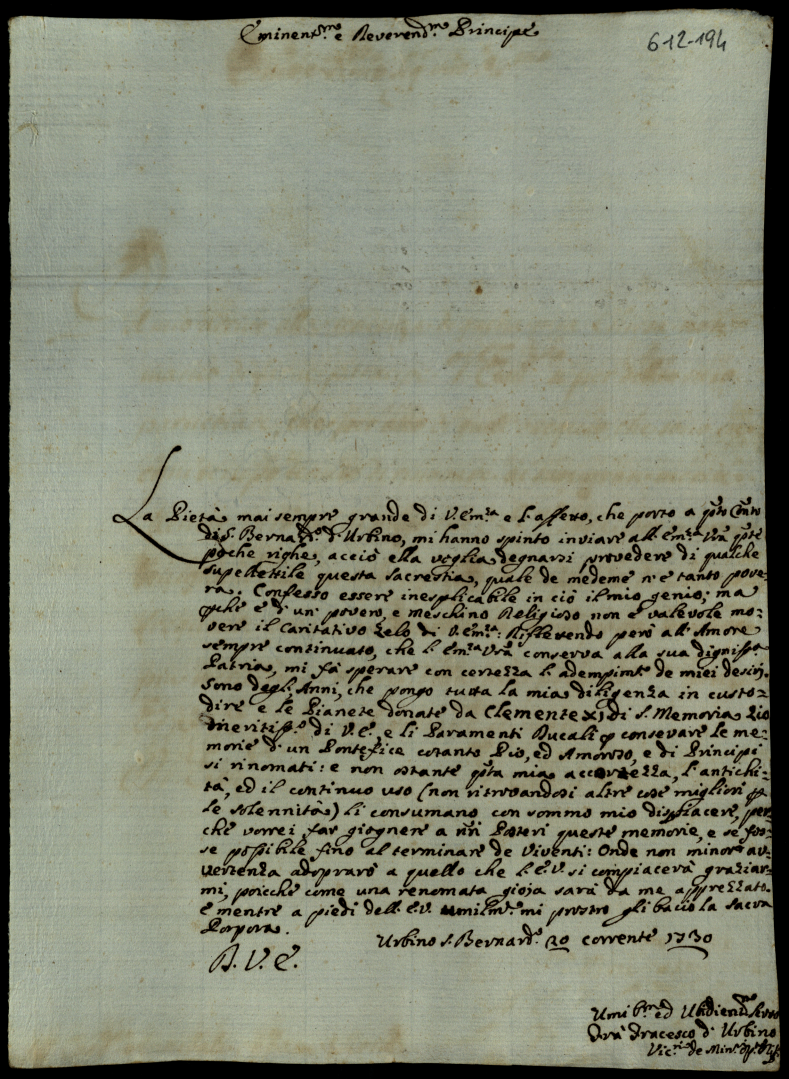 Eminent.mo e Reverend.mo Principe
6-12-194
La Pietà mai sempre grande di V. Em.za e l'affetto, che porto a q̃sto Con̄to
di S. Bernard.o d'Urbino, mi hanno spinto inviare all'Em.za Vr̃a q̃ste
poche righe, acciò ella voglia degnarsi provedere di qualche
supellettile questa sacrestia, quale de medeme n'è tanto pove-
ra. Confesso essere inesplicabile in ciò il mio genio; ma
p̃chè è d'un povero, e meschino Religioso non è valevole mo-
vere il Caritativo Zelo di V. Em.za: Riflettendo però all'Amore
sempre continuato, che l'Em.za Vr̃a conserva alla sua digniss.a
Patria, mi fà sperare con certezza l'adempim.to de miei desirj.
Sono degl'Anni, che pongo tutta la mia diligenza in custo-
dire e le Pianete donate da Clemente XI di S. Memoria Zio
meritiss.o di V. E., e li Paramenti Ducali p conservare le me-
morie d'un Pontefice cotanto Pio, ed Amoroso, e di Principi
si rinomati: e non ostante q̃sta mia accortezza, l'antichi-
tà, ed il continuo uso (non ritrovandosi altre cose migliori p
le solennità) li consumano con sommo mio dispiacere, per-
chè vorrei far giognere a n̄ri Posteri queste memorie, e se fos-
se possibile fino al terminare de Viventi: Onde non minore av-
vertenza adoprarò a quello che l'E. V. si compiacerà graziar-
mi, poicchè come una renomata gioja sarà da me apprezzato.
E mentre a piedi dell'E. V. umilm.e mi prostro gli bacio la Sacra
Porpora.
Urbino S. Bernard.o 20 corrente 1730
D. V. E.
Umil.mo ed Ubidien.mo Servo
Fra Fracesco d'Urbino
Vic.rio de Min.